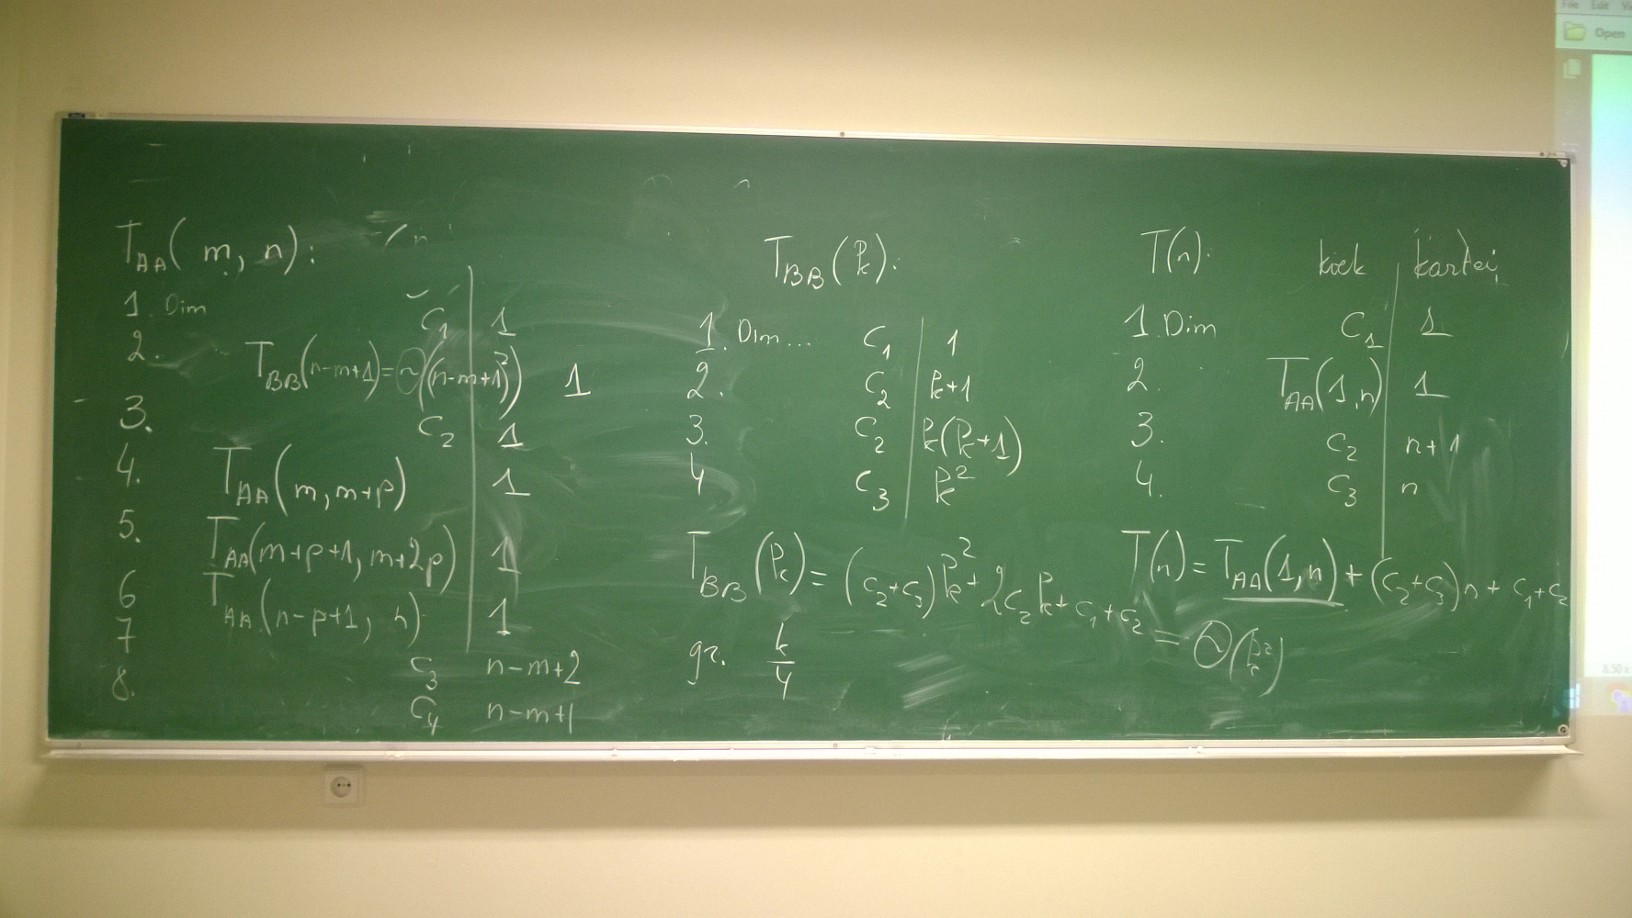 T_AA(m, n):
1. Dim C₁ | 1
2. T_BB(n-m+1) = Θ((n-m+1)²) 1
3. C₂ | 1
4. T_AA(m, m+p) | 1
5. T_AA(m+p+1, m+2p) | 1
6 T_AA(n-p+1, n) | 1
7 C₃ n-m+2
8. C₄ n-m+1
T_BB(k):
1. Dim... C₁ | 1
2. C₂ | k+1
3. C₂ | k(k+1)
4 C₃ | k²
T_BB(k) = (C₂+C₃)k² + 2C₂k + C₁+C₂
gr. k/4
T(n): kiek | kartų
1. Dim C₁ | 1
2. T_AA(1,n) | 1
3. C₂ | n+1
4. C₃ | n
T(n) = T_AA(1,n) + (C₂+C₃)n + C₁+C₂
= Θ(k²)
File Edit
Open